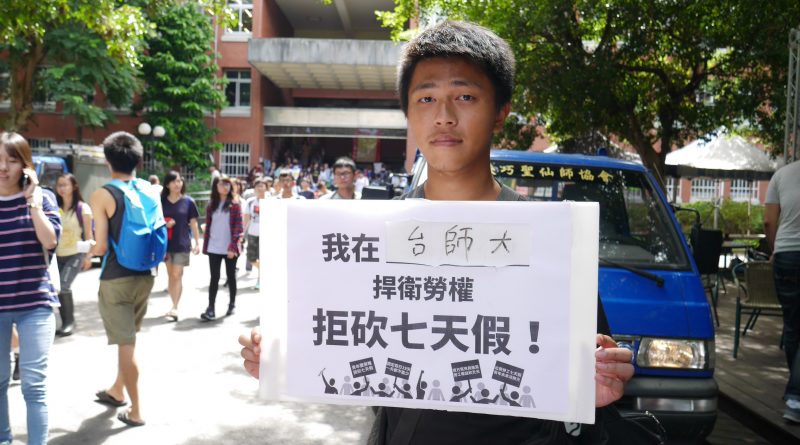 巧聖仙師協會
我在 台師大
捍衛勞權
拒砍七天假！